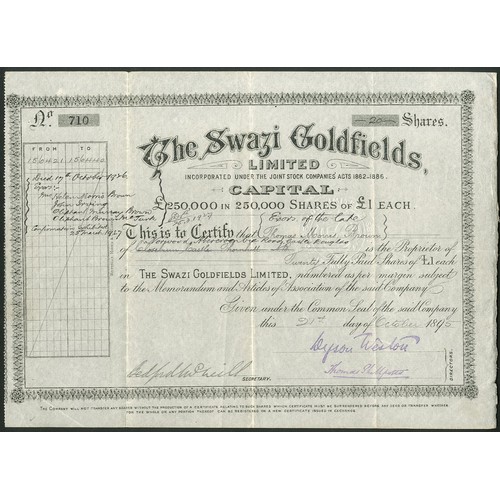 No 710
20 Shares.
The Swazi Goldfields,
LIMITED
INCORPORATED UNDER THE JOINT STOCK COMPANIES ACTS 1862-1886.
CAPITAL
£250,000 IN 250,000 SHARES OF £1 EACH.
FROM TO
156421 156440
Died 17th October 1926
Mrs Helen Morris Brown
28 March 1927
Exors. of the late
This is to Certify that Thomas Morris Brown
is the Proprietor of
Twenty Fully Paid Shares of £1 each
in THE SWAZI GOLDFIELDS LIMITED, numbered as per margin subject
to the Memorandum and Articles of Association of the said Company.
Given under the Common Seal of the said Company
this day of October 1895
SECRETARY.
DIRECTORS.
THE COMPANY WILL NOT TRANSFER ANY SHARES WITHOUT THE PRODUCTION OF A CERTIFICATE RELATING TO SUCH SHARES WHICH CERTIFICATE MUST BE SURRENDERED BEFORE ANY DEED OR TRANSFER WHETHER
FOR THE WHOLE OR ANY PORTION THEREOF CAN BE REGISTERED OR A NEW CERTIFICATE ISSUED IN EXCHANGE.